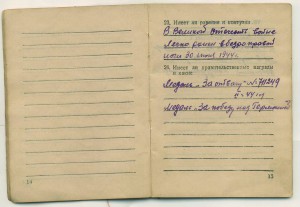 23. Имеет ли ранения и контузии
В Великой Отечест. Войне
Легко ранен в
ноги 30 июня 1944 г.
24. Имеет ли правительственные награды
и какие
Медаль „За отвагу" №
Медаль „За победу над Германией"
14
15